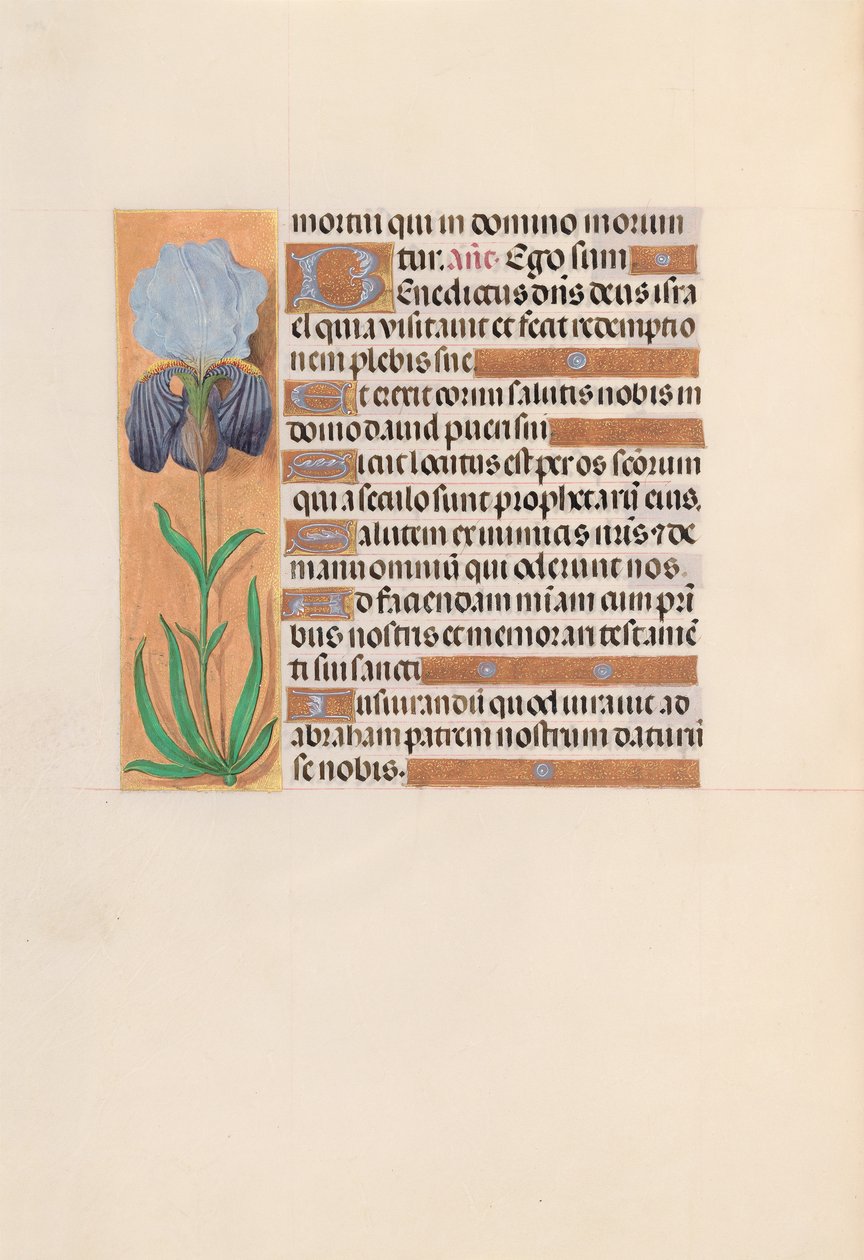 mortui qui in domino moriun
tur. añe. Ego sum
Benedictus dñs deus isra
el quia visitauit et fecit redemptio
nem plebis sue
Et erexit cornu salutis nobis in
domo dauid pueri sui
Sicut locutus est per os scõrum
qui a seculo sunt prophetarũ eius.
Salutem ex inimicis nr̃is ⁊ de
manu omniũ qui oderunt nos.
Ad faciendam mĩam cum patri
bus nostris et memorari testamẽ
ti sui sancti
Iusiurandũ quod iurauit ad
abraham patrem nostrum daturũ
se nobis.